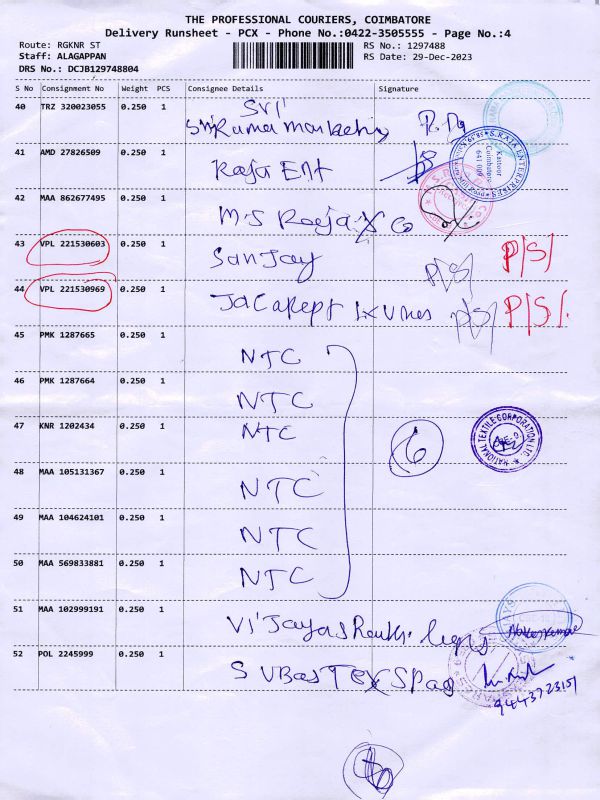 THE PROFESSIONAL COURIERS, COIMBATORE
Delivery Runsheet - PCX - Phone No.:0422-3505555 - Page No.:4
Route: RGKNR ST
RS No.: 1297488
Staff: ALAGAPPAN
RS Date: 29-Dec-2023
DRS No.: DCJB129748804
S No Consignment No Weight PCS Consignee Details Signature
40 TRZ 320023055 0.250 1 Sri
41 AMD 27826509 0.250 1 Raja Ent
S.RAJA ENTERPRISES
Kattoor
Coimbatore
641 009
42 MAA 862677495 0.250 1 M.S Rooja & Co
43 VPL 221530603 0.250 1 Sanjay P/S/ P/S/
44 VPL 221530969 0.250 1 P/S/ P/S/.
45 PMK 1287665 0.250 1 NTC
46 PMK 1287664 0.250 1 NTC
47 KNR 1202434 0.250 1 NTC 6
NATIONAL TEXTILE CORPORATION LTD.
48 MAA 105131367 0.250 1 NTC
49 MAA 104624101 0.250 1 NTC
50 MAA 569833881 0.250 1 NTC
51 MAA 102999191 0.250 1
52 POL 2245999 0.250 1
9443723151